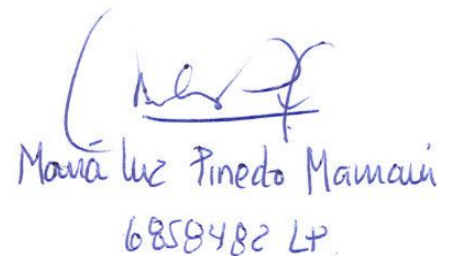 María luz Pinedo Mamani
6858482 LP.